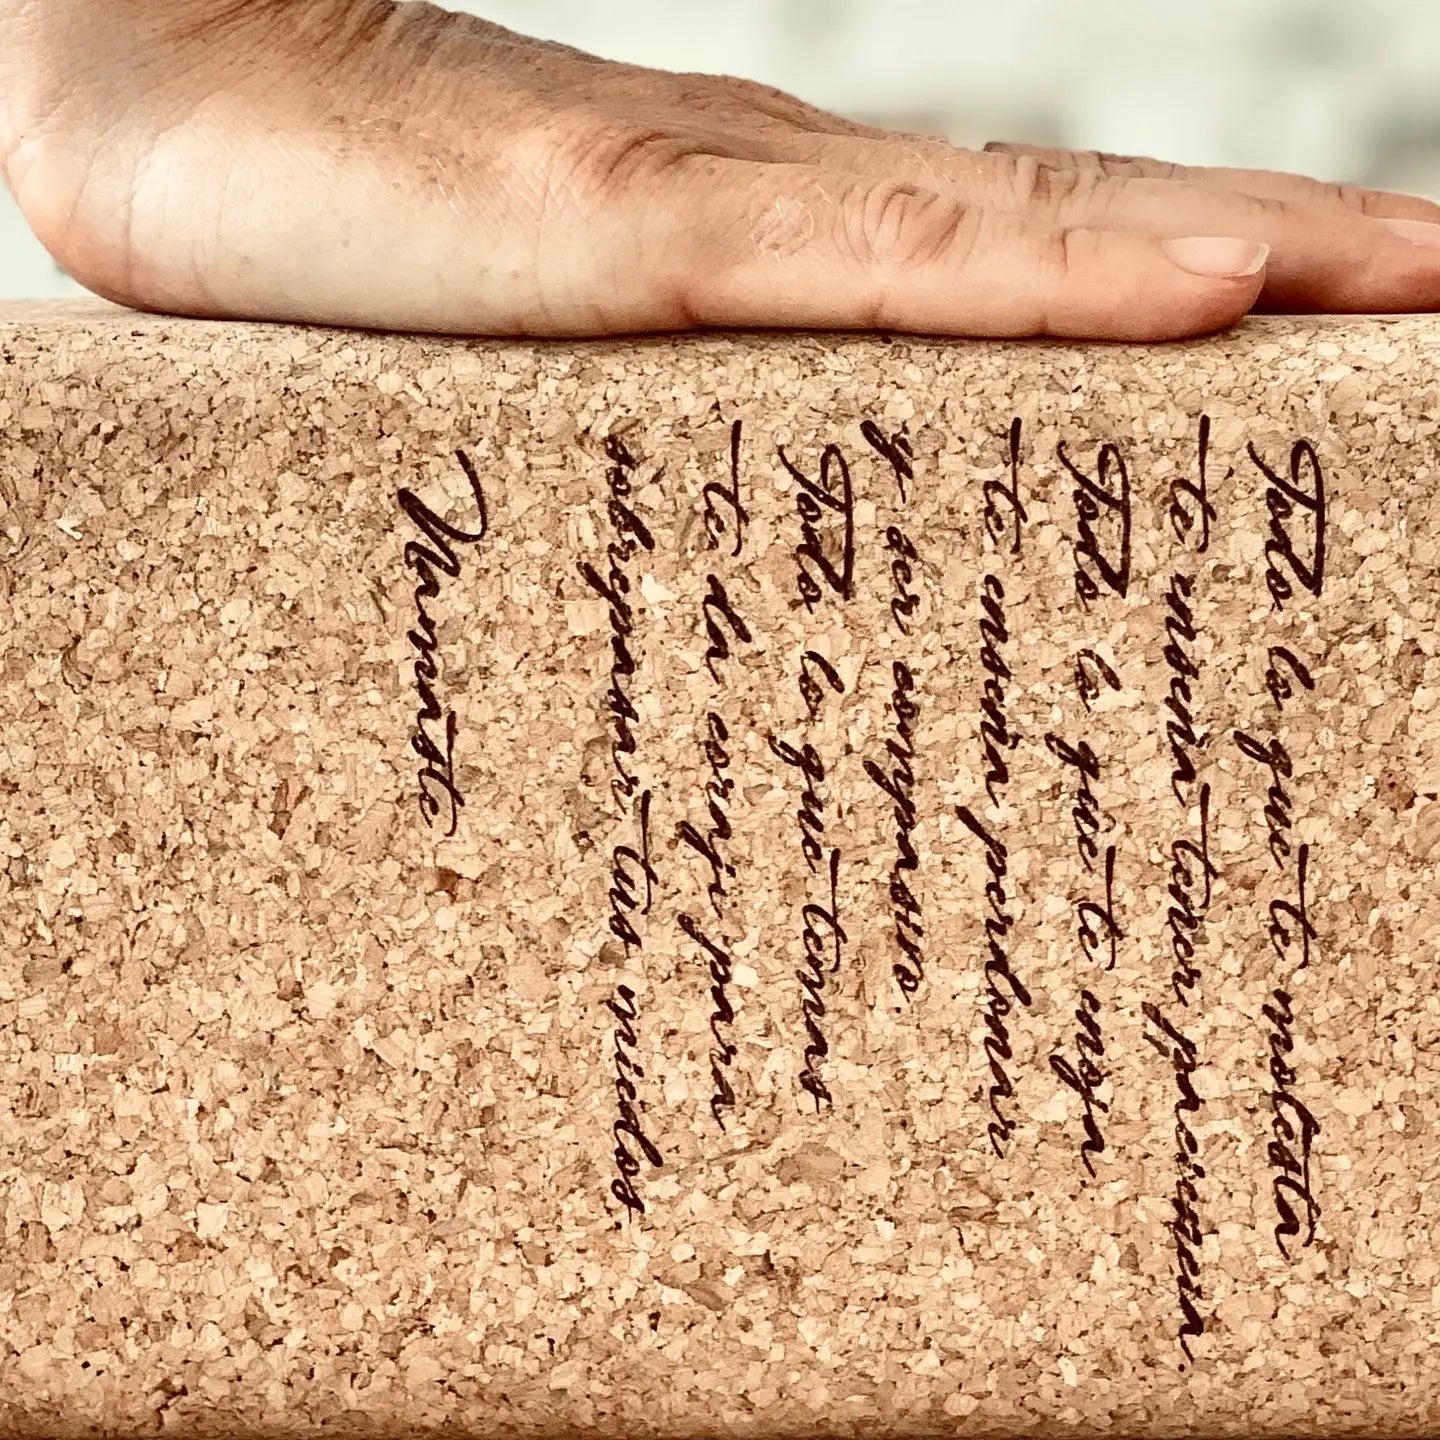 Todo lo que te molesta
te enseña tener paciencia.
Todo lo que te enoja
te enseña perdonar
y ser compasivo.
Todo lo que temas
te da coraje para
sobrepasar tus miedos.
Namaste